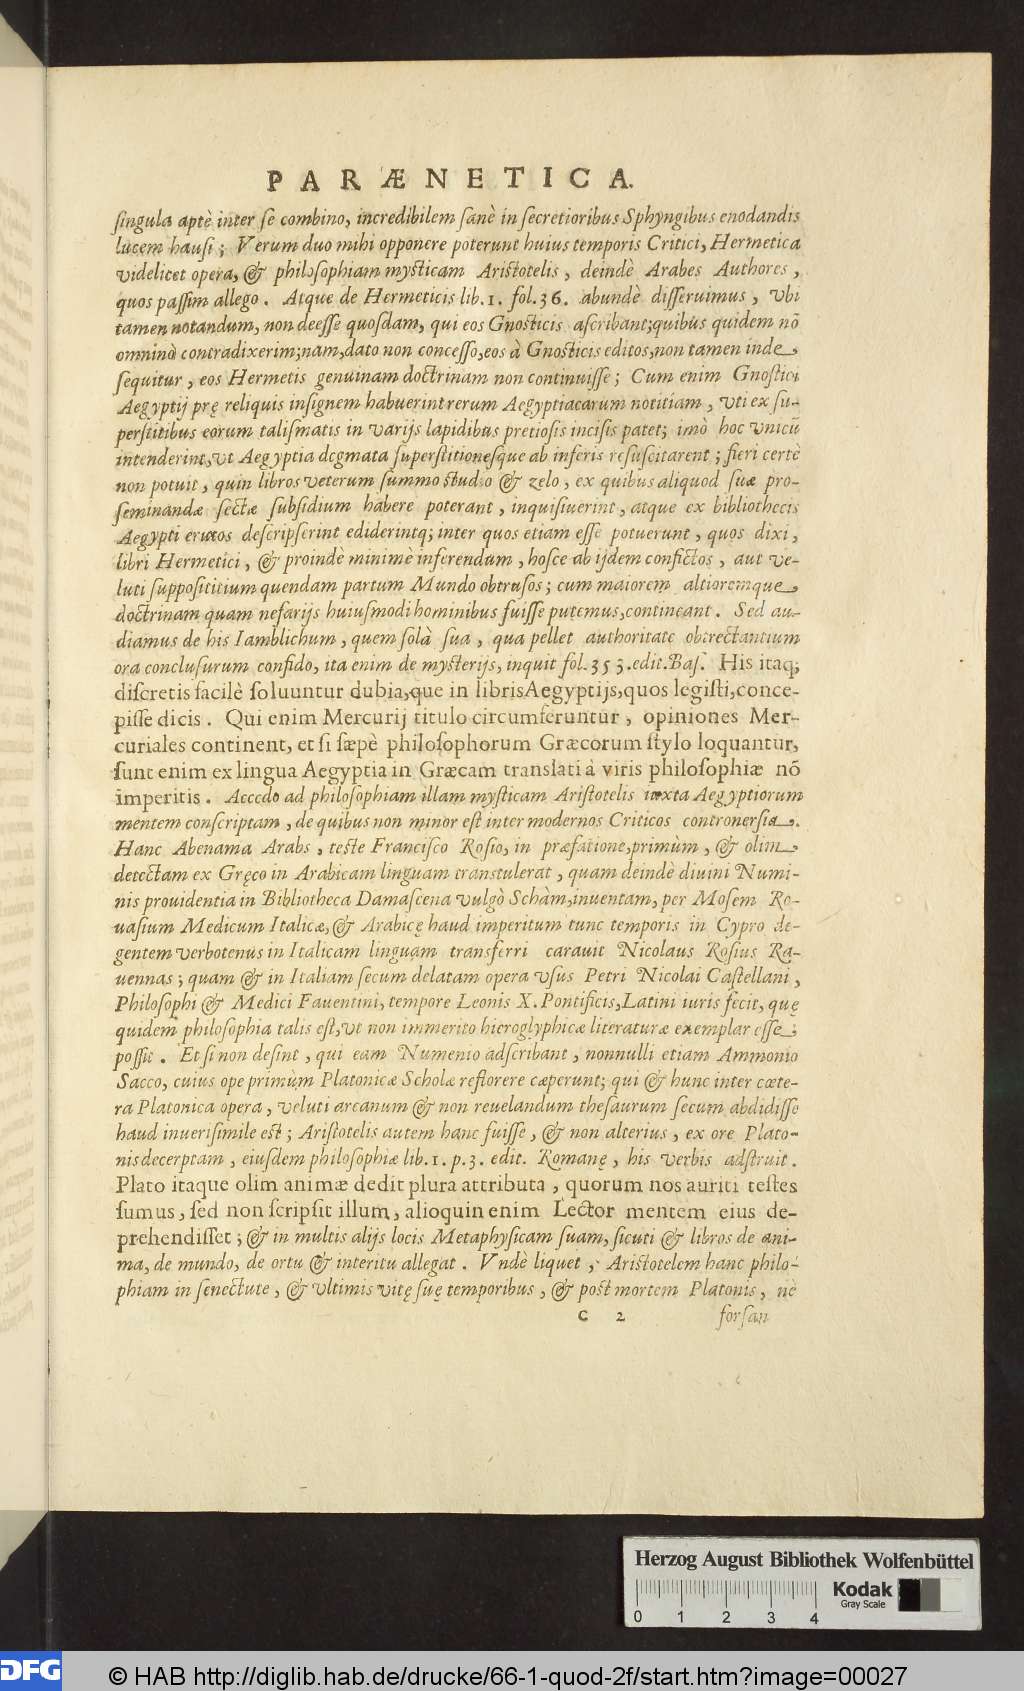 PARÆNETICA.
singula aptè inter se combino, incredibilem sanè in secretioribus Sphyngibus enodandis
lucem hausi; Verum duo mihi opponere poterunt huius temporis Critici, Hermetica
videlicet opera, & philosophiam mysticam Aristotelis, deindè Arabes Authores,
quos passim allego. Atque de Hermeticis lib. 1. fol. 36. abundè disseruimus, vbi
tamen notandum, non deesse quosdam, qui eos Gnosticis ascribant; quibus quidem nō
omninò contradixerim; nam, dato non concesso, eos à Gnosticis editos, non tamen inde
sequitur, eos Hermetis genuinam doctrinam non continuisse; Cum enim Gnostici
Aegyptij prę reliquis insignem habuerint rerum Aegyptiacarum notitiam, vti ex su-
perstitibus eorum talismatis in varijs lapidibus pretiosis incisis patet; imò hoc vnicū
intenderint, vt Aegyptia dogmata superstitionesque ab inferis resuscitarent; fieri certè
non potuit, quin libros veterum summo studio & zelo, ex quibus aliquod suæ pro-
seminandæ sectæ subsidium habere poterant, inquisiuerint, atque ex bibliothecis
Aegypti erutos descripserint ediderintq; inter quos etiam esse potuerunt, quos dixi,
libri Hermetici, & proindè minimè inferendum, hosce ab ijdem confictos, aut ve-
luti supposititium quendam partum Mundo obtrusos; cum maiorem altioremque
doctrinam quam nefarijs huiusmodi hominibus fuisse putemus, contineant. Sed au-
diamus de his Iamblichum, quem solà sua, qua pellet authoritate obtrectantium
ora conclusurum confido, ita enim de mysterijs, inquit fol. 353. edit. Bas. His itaq;
discretis facilè soluuntur dubia, que in libris Aegyptijs, quos legisti, conce-
pisse dicis. Qui enim Mercurij titulo circumferuntur, opiniones Mer-
curiales continent, et si sæpè philosophorum Græcorum stylo loquantur,
sunt enim ex lingua Aegyptia in Græcam translati à viris philosophiæ nō
imperitis. Accedo ad philosophiam illam mysticam Aristotelis iuxta Aegyptiorum
mentem conscriptam, de quibus non minor est inter modernos Criticos controuersia.
Hanc Abenama Arabs, teste Francisco Rosio, in præfatione, primùm, & olim
detectam ex Gręco in Arabicam linguam transtulerat, quam deindè diuini Numi-
nis prouidentia in Bibliotheca Damascena vulgò Schàm, inuentam, per Mosem Ro-
uasium Medicum Italicæ, & Arabicę haud imperitum tunc temporis in Cypro de-
gentem verbotenus in Italicam linguam transferri carauit Nicolaus Rosius Ra-
uennas; quam & in Italiam secum delatam opera vsus Petri Nicolai Castellani,
Philosophi & Medici Fauentini, tempore Leonis X. Pontificis, Latini iuris fecit, quę
quidem philosophia talis est, vt non immerito hieroglyphicæ literaturæ exemplar esse
possit. Et si non desint, qui eam Numenio adscribant, nonnulli etiam Ammonio
Sacco, cuius ope primùm Platonicæ Scholæ reflorere cæperunt; qui & hunc inter cœte-
ra Platonica opera, veluti arcanum & non reuelandum thesaurum secum abdidisse
haud inuerisimile est; Aristotelis autem hanc fuisse, & non alterius, ex ore Plato-
nis decerptam, eiusdem philosophiæ lib. 1. p. 3. edit. Romanę, his verbis adstruit.
Plato itaque olim animæ dedit plura attributa, quorum nos auriti testes
sumus, sed non scripsit illum, alioquin enim Lector mentem eius de-
prehendisset; & in multis alijs locis Metaphysicam suam, sicuti & libros de ani-
ma, de mundo, de ortu & interitu allegat. Vndè liquet, Aristotelem hanc philo-
phiam in senectute, & vltimis vitę suę temporibus, & post mortem Platonis, nè
C 2 forsan
Herzog August Bibliothek Wolfenbüttel
Kodak
Gray Scale
0 1 2 3 4
DFG © HAB http://diglib.hab.de/drucke/66-1-quod-2f/start.htm?image=00027